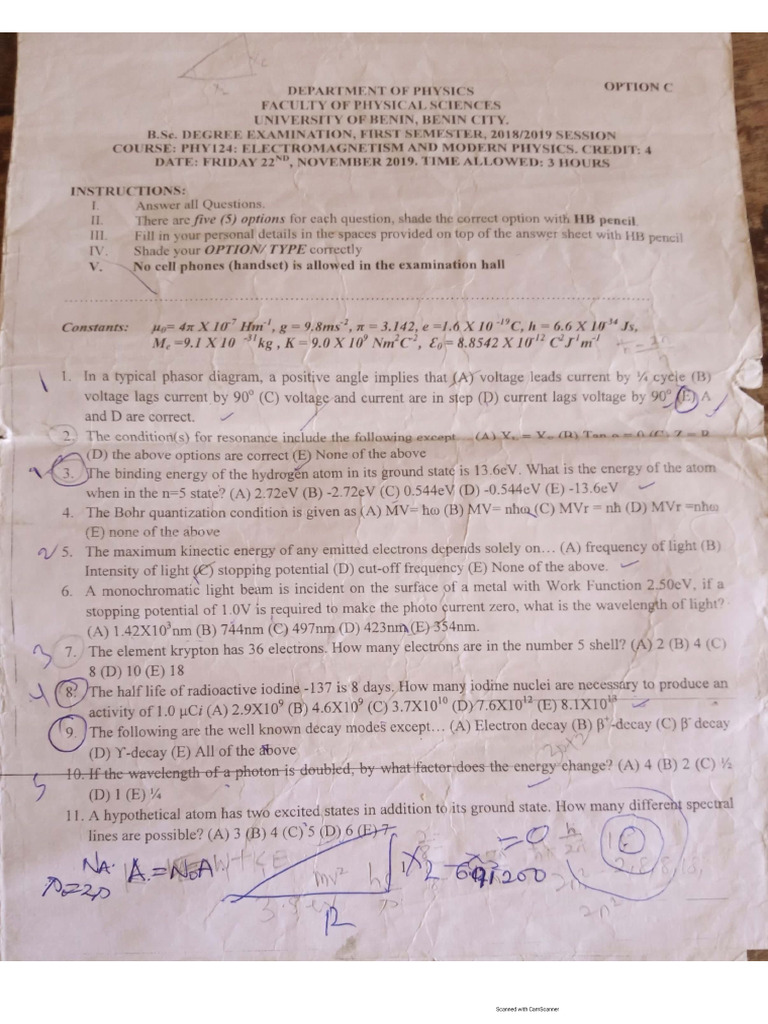 OPTION C
DEPARTMENT OF PHYSICS
FACULTY OF PHYSICAL SCIENCES
UNIVERSITY OF BENIN, BENIN CITY.
B.Sc. DEGREE EXAMINATION, FIRST SEMESTER, 2018/2019 SESSION
COURSE: PHY124: ELECTROMAGNETISM AND MODERN PHYSICS. CREDIT: 4
DATE: FRIDAY 22ND, NOVEMBER 2019. TIME ALLOWED: 3 HOURS
INSTRUCTIONS:
I. Answer all Questions.
II. There are five (5) options for each question, shade the correct option with HB pencil
III. Fill in your personal details in the spaces provided on top of the answer sheet with HB pencil
IV. Shade your OPTION/ TYPE correctly
V. No cell phones (handset) is allowed in the examination hall
Constants: μ0= 4π X 10^-7 Hm^-1, g = 9.8ms^-2, π = 3.142, e =1.6 X 10^-19 C, h = 6.6 X 10^-34 Js,
Me =9.1 X 10^-31 kg , K = 9.0 X 10^9 Nm^2C^-2, ε0 = 8.8542 X 10^-12 C^2J^-1m^-1
1. In a typical phasor diagram, a positive angle implies that (A) voltage leads current by ¼ cycle (B)
voltage lags current by 90° (C) voltage and current are in step (D) current lags voltage by 90° (E) A
and D are correct.
2. The condition(s) for resonance include the following except
(D) the above options are correct (E) None of the above
3. The binding energy of the hydrogen atom in its ground state is 13.6eV. What is the energy of the atom
when in the n=5 state? (A) 2.72eV (B) -2.72eV (C) 0.544eV (D) -0.544eV (E) -13.6eV
4. The Bohr quantization condition is given as (A) MV= ħω (B) MV= nħω (C) MVr = nħ (D) MVr =nħω
(E) none of the above
5. The maximum kinetic energy of any emitted electrons depends solely on… (A) frequency of light (B)
Intensity of light (C) stopping potential (D) cut-off frequency (E) None of the above.
6. A monochromatic light beam is incident on the surface of a metal with Work Function 2.50eV, if a
stopping potential of 1.0V is required to make the photo current zero, what is the wavelength of light?
(A) 1.42X10^3nm (B) 744nm (C) 497nm (D) 423nm (E) 354nm.
7. The element krypton has 36 electrons. How many electrons are in the number 5 shell? (A) 2 (B) 4 (C)
8 (D) 10 (E) 18
8. The half life of radioactive iodine -137 is 8 days. How many iodine nuclei are necessary to produce an
activity of 1.0 μCi (A) 2.9X10^9 (B) 4.6X10^9 (C) 3.7X10^10 (D) 7.6X10^12 (E) 8.1X10^13
9. The following are the well known decay modes except… (A) Electron decay (B) β^+-decay (C) β^- decay
(D) ϒ-decay (E) All of the above
10. If the wavelength of a photon is doubled, by what factor does the energy change? (A) 4 (B) 2 (C) ½
(D) 1 (E) ¼
11. A hypothetical atom has two excited states in addition to its ground state. How many different spectral
lines are possible? (A) 3 (B) 4 (C) 5 (D) 6 (E) 7
Scanned with CamScanner